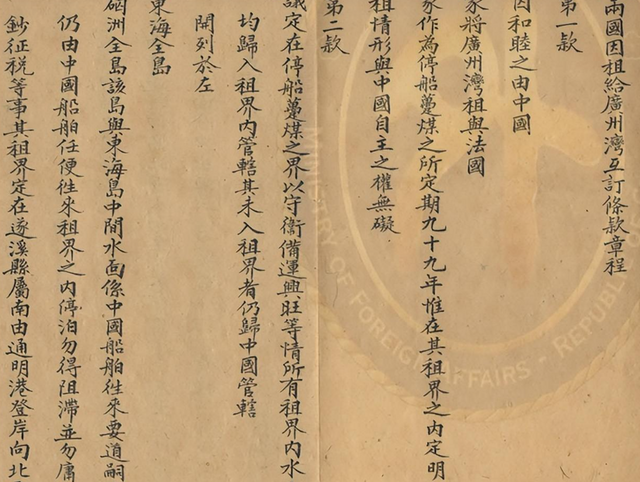 兩國因租給廣州灣互訂條款章程
第一款
因和睦之由中國
家將廣州灣租與法國
家作為停船躉煤之所定期九十九年惟在其租界之內定明
租情形與中國自主之權無礙
第二款
議定在停船躉煤之界以守衛備運興旺等情所有租界內水
均歸入租界內管轄其未入租界者仍歸中國管轄
開列於左
東海全島
硇洲全島該島與東海島中間水面係中國船舶徃來要道嗣
仍由中國船舶任便徃來租界之內停泊勿得阻滯並勿庸
鈔征稅等事其租界定在遂溪縣屬南由通明港登岸向北
MINISTRY OF FOREIGN AFFAIRS REPUBL